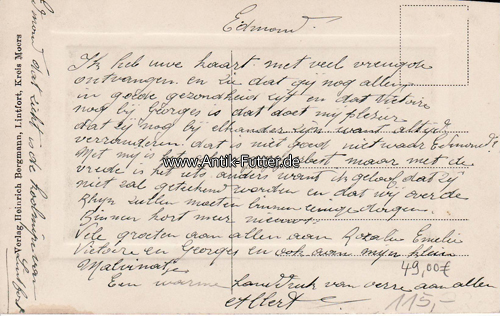 Edmond.
Ik heb uwe kaart met veel vreugde
ontvangen en zie dat gij nog allen
in goede gezondheid zijt en dat Victoire
nog bij Georges is dat doet mij plezier
dat zij nog bij elkander zijn want altijd
veranderen dat is niet goed niet waar Edmond
Met mij is best maar met de
vrede is het iets anders want ik geloof dat zij
niet zal geteekend worden en dat wij over de
Rhijn zullen moeten binnen eenige dagen.
Binnen kort meer nieuws
Vele groeten aan allen aan Rozalie Emelie
Victoire en Georges en ook aan mijn klein
Malvinatje
Een warme handdruk van verre aan allen
Albert
49,00€
115,-
www.Antik-Futter.de
Verlag: Heinrich Bergmann, Lintfort, Kreis Moers
Edmond dat zicht is de koolmijn van
Lintfort